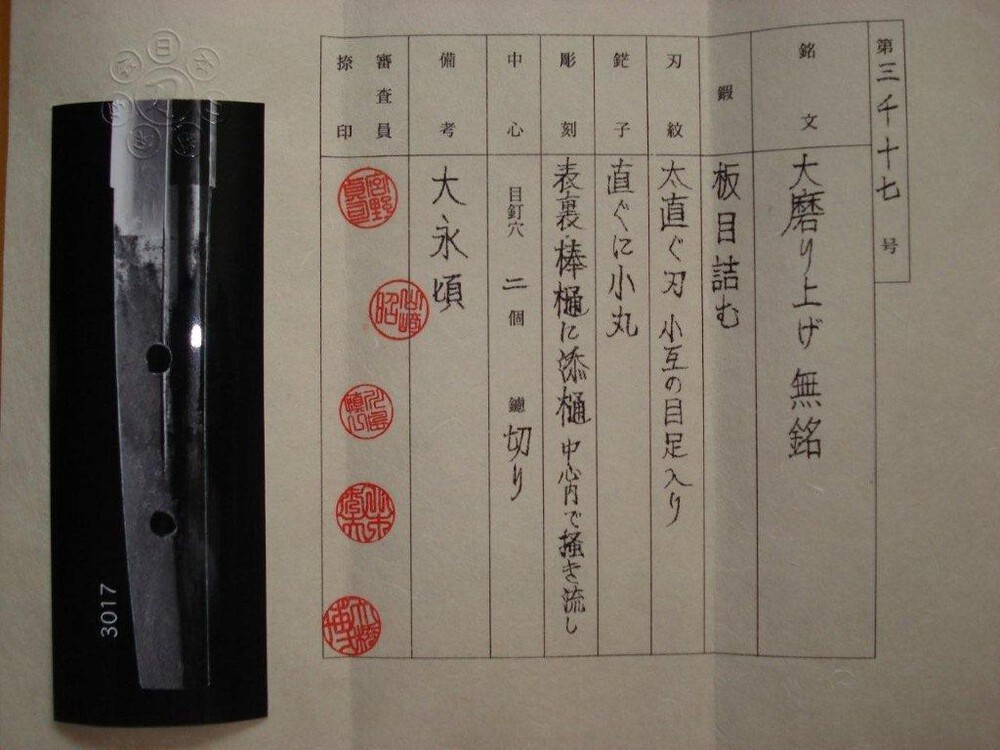 第三千十七号
銘文 大磨り上げ 無銘
鍜 板目詰む
刃紋 太直ぐ刃 小互の目足入り
鋩子 直ぐに小丸
彫刻 表裏棒樋に添樋 中心内で掻き流し
中心 目釘穴 二個 鑢 切り
備考 大永頃
審査員
捺印
3017